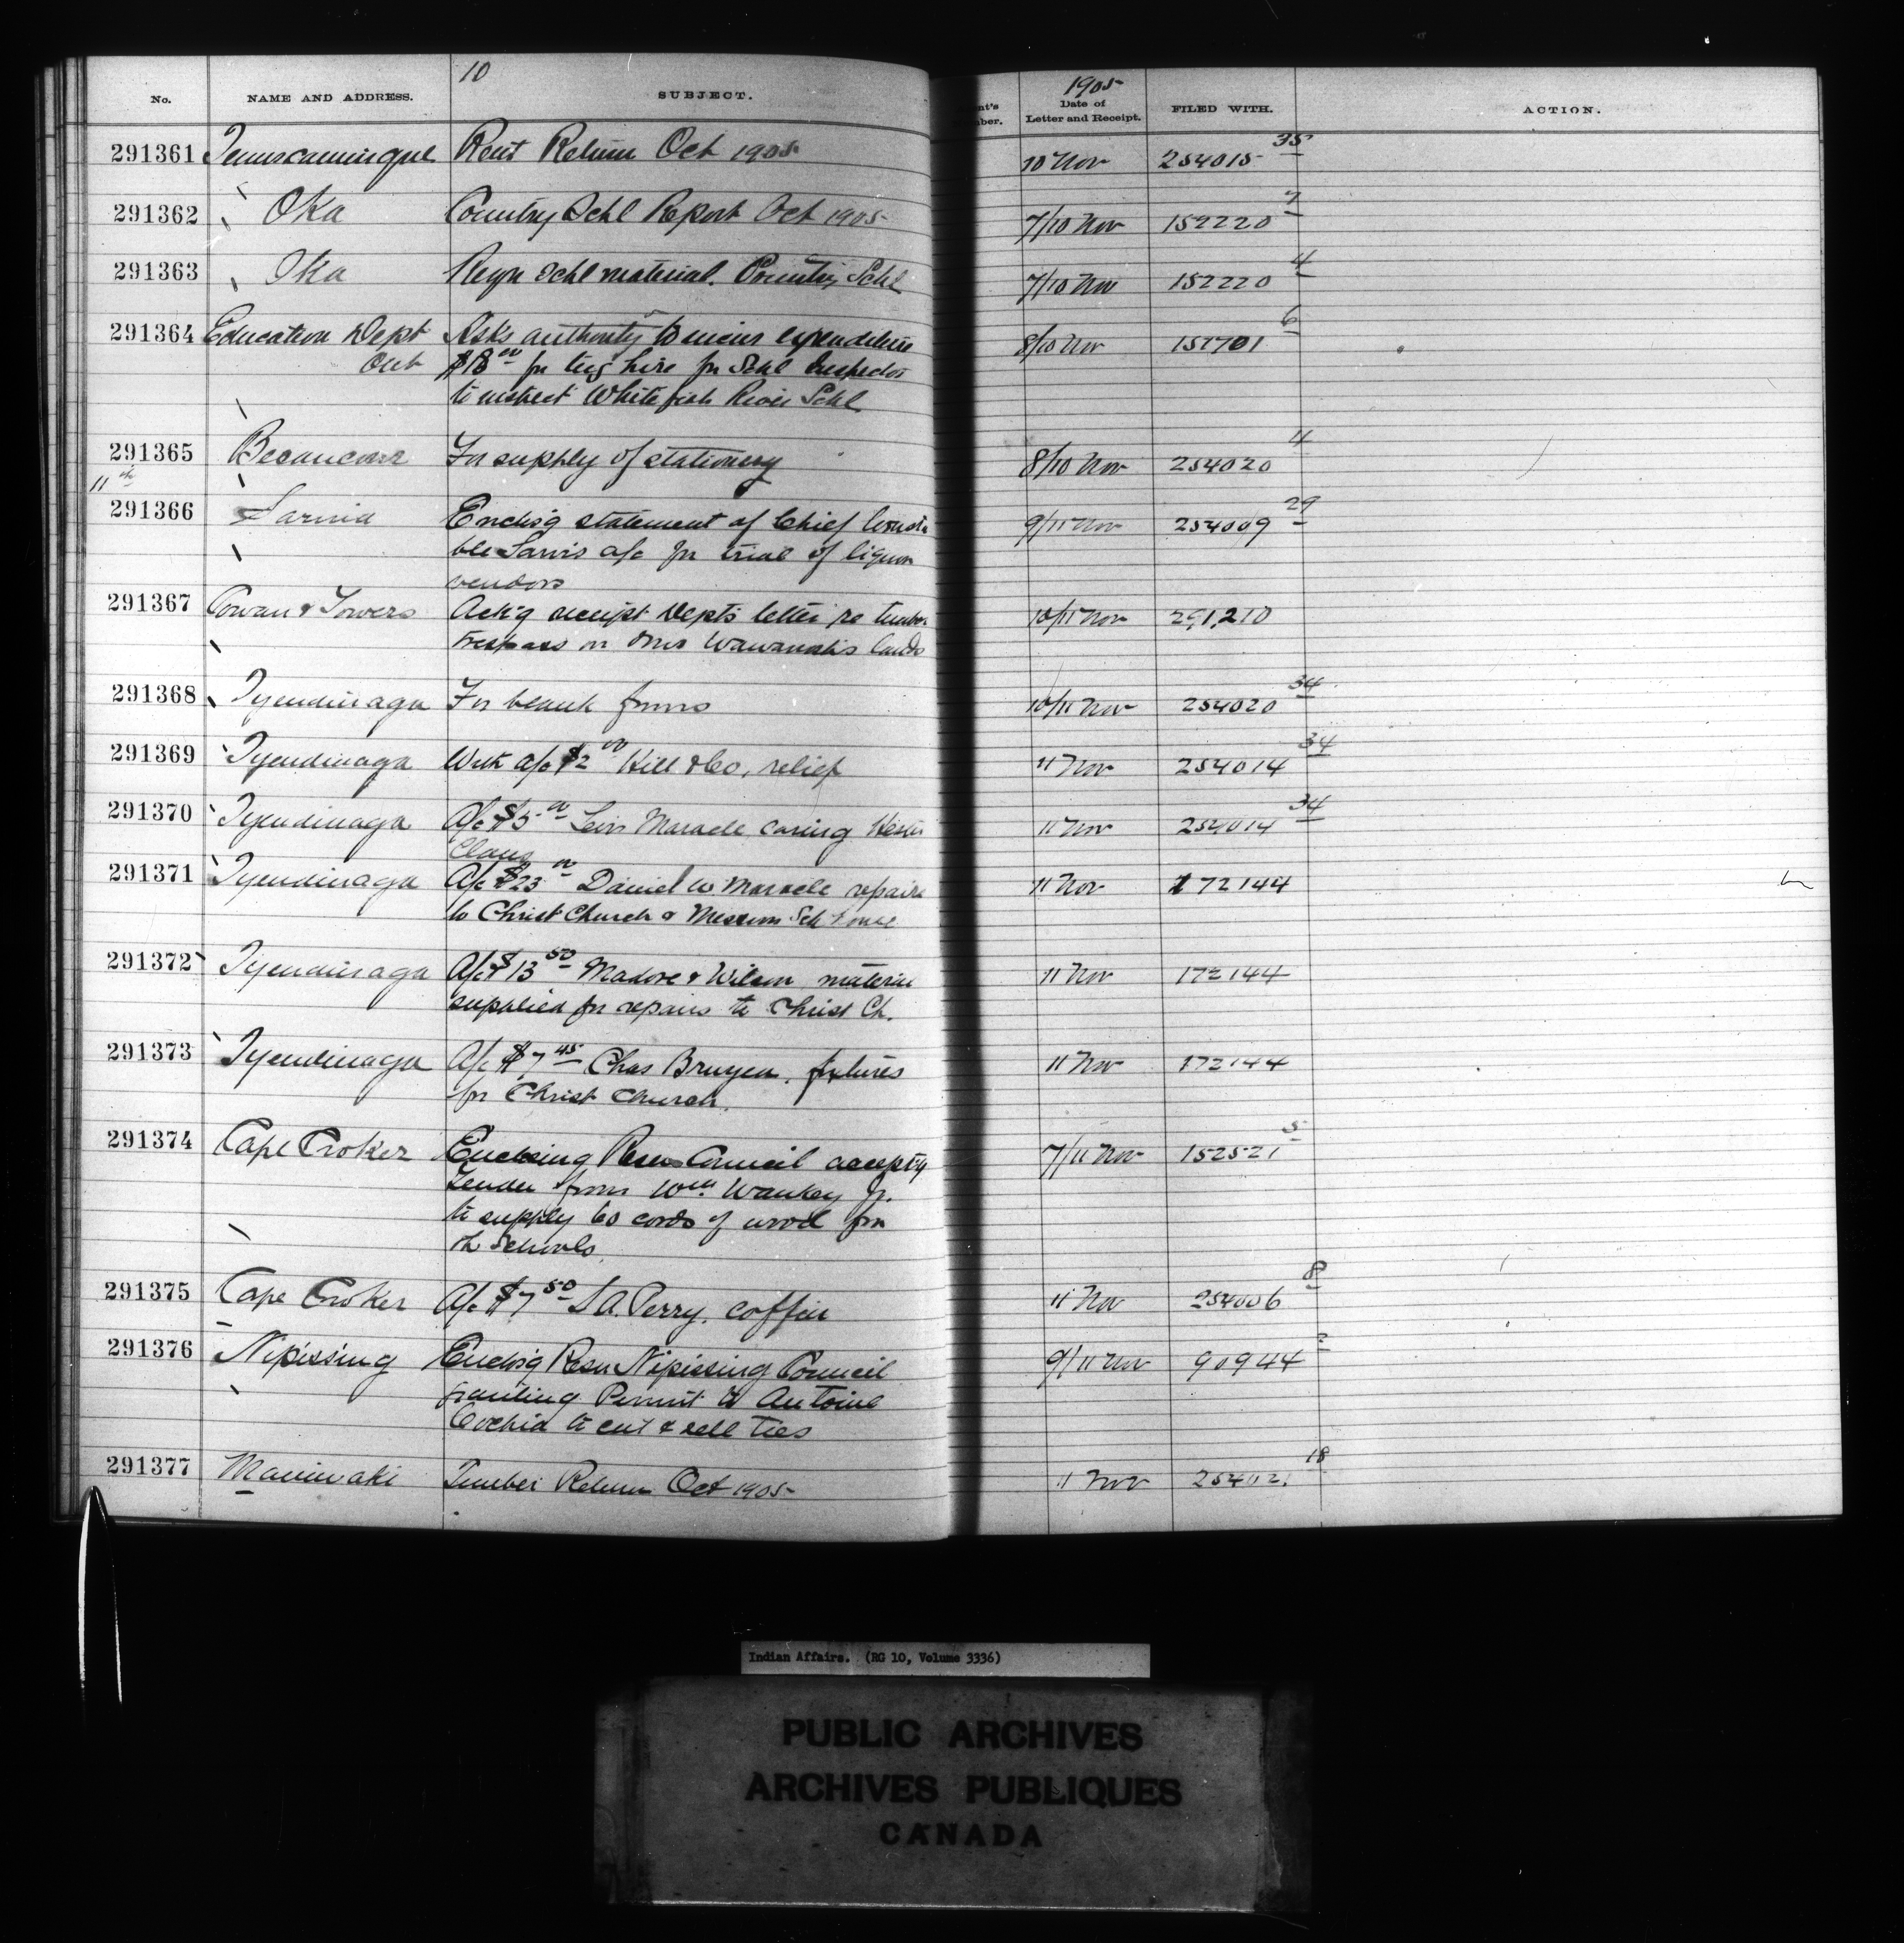 10
1905
No. NAME AND ADDRESS. SUBJECT. nt's mber. Date of Letter and Receipt. FILED WITH. ACTION.
291361 Temiscamingue Rent Return Oct 1905 10 Nov 254015 35
291362 Oka Country Schl Report Oct 1905 7/10 Nov 152220 7
291363 Oka Reqn Schl material. Country Schl 7/10 Nov 152220 4
291364 Education Dept Asks authority to incur expenditure 8/10 Nov 157701 6
Ont $18 00 for tug hire for Schl Inspector
to inspect Whitefish River Schl
291365 Becancour For supply of stationery 8/10 Nov 254020 4
11th
291366 Sarnia Enclos'g statement of Chief Consta 9/11 Nov 254009 29
ble Sarvis a/c for trial of liquor
vendors
291367 Cowan & Towers Ack'g receipt Dept's letter re timber 10/11 Nov 291,210
trespass on Mrs Wawanosh's lands
291368 Tyendinaga For blank forms 10/11 Nov 254020 34
291369 Tyendinaga With a/c $2 00 Hill & Co, relief 11 Nov 254014 34
291370 Tyendinaga A/c $5 00 Levi Maracle caring Hester 11 Nov 254014 34
Claus
291371 Tyendinaga A/c $23 00 Daniel W Maracle repairs 11 Nov 172144
to Christ Church & Mission Sch house
291372 Tyendinaga A/c $13 50 Madore & Wilson material 11 Nov 172144
supplied for repairs to Christ Ch.
291373 Tyendinaga A/c $7 45 Chas Bruyea, fixtures 11 Nov 172144
for Christ Church.
291374 Cape Croker Enclosing Resn Council accept'g 7/11 Nov 152521 5
tender from Wm Waukey Jr.
to supply 60 cords of wood for
the schools
291375 Cape Croker A/c $7 50 S A. Perry, coffin 11 Nov 254006 8
291376 Nipissing Enclos'g Resn Nipissing Council 9/11 Nov 90944 2
granting Permit to Antoine
Cochia to cut & sell ties
291377 Maniwaki Timber Return Oct 1905 11 Nov 254021 18
Indian Affairs. (RG 10, Volume 3336)
PUBLIC ARCHIVES
ARCHIVES PUBLIQUES
CANADA